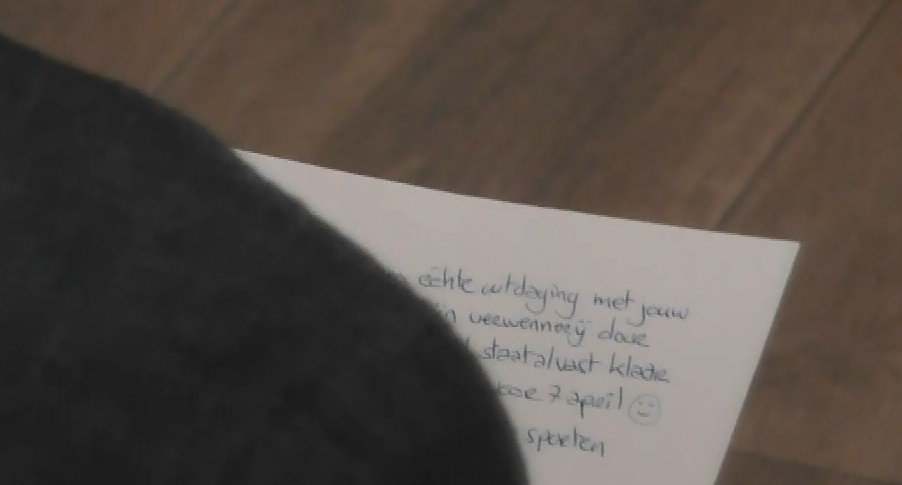 échte uitdaging met jouw
verwennerij door
staat alvast klaar
voor 7 april
sporten